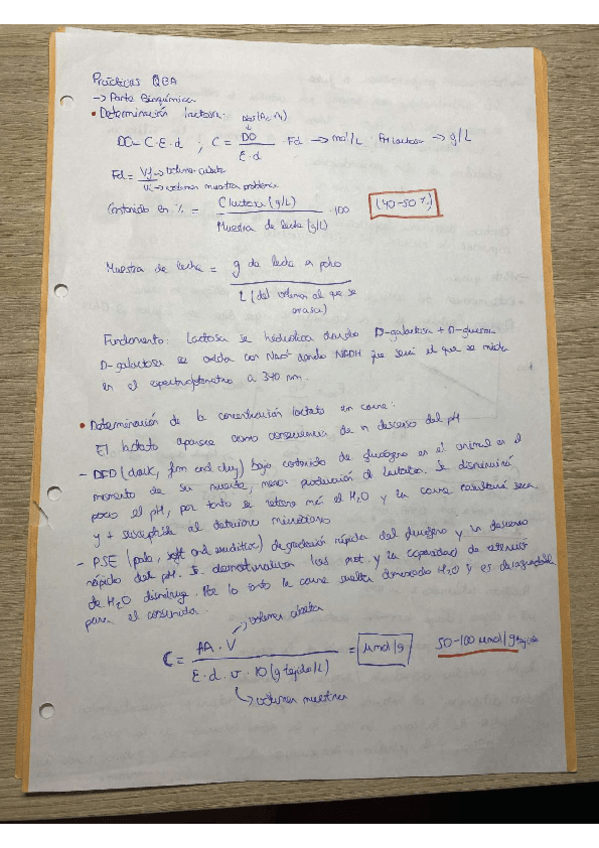 Prácticas QBA
-> Parte Bioquímica
• Determinación lactosa:
Abs(A2-A1)
DO = C·E·d ; C = DO / E·d · Fd -> mol/L · PM lactosa -> g/L
Fd = Vf -> volumen cubeta / Vi -> volumen muestra problema
Contenido en % = C lactosa (g/L) / Muestra de leche (g/L) · 100 (40-50%)
Muestra de leche = g de leche en polvo / L (del volumen al que se
enrasa)
Fundamento: Lactosa se hidroliza dando D-galactosa + D-glucosa
D-galactosa se oxida con NAD+ dando NADH que será el que se mida
en el espectrofotómetro a 340 nm.
• Determinación de la concentración lactato en carne:
El lactato aparece como consecuencia de un descenso del pH
- DFD (dark, firm and dry) bajo contenido de glucógeno en el animal en el
momento de su muerte, menor producción de lactato. Se disminuirá
poco el pH, por tanto se retiene más el H2O y la carne resultará seca
y + susceptible al deterioro microbiano
- PSE (pale, soft and exudative) degradación rápida del glucógeno y un descenso
rápido del pH. Se desnaturalizan las prot. y la capacidad de retención
de H2O disminuye. Por lo tanto la carne suelta demasiado H2O y es desagradable
para el consumidor.
volumen cubeta
C = AA · V / E·d·v·10 (g tejido/L) = μmol/g 50-100 μmol/g tejido
volumen muestra